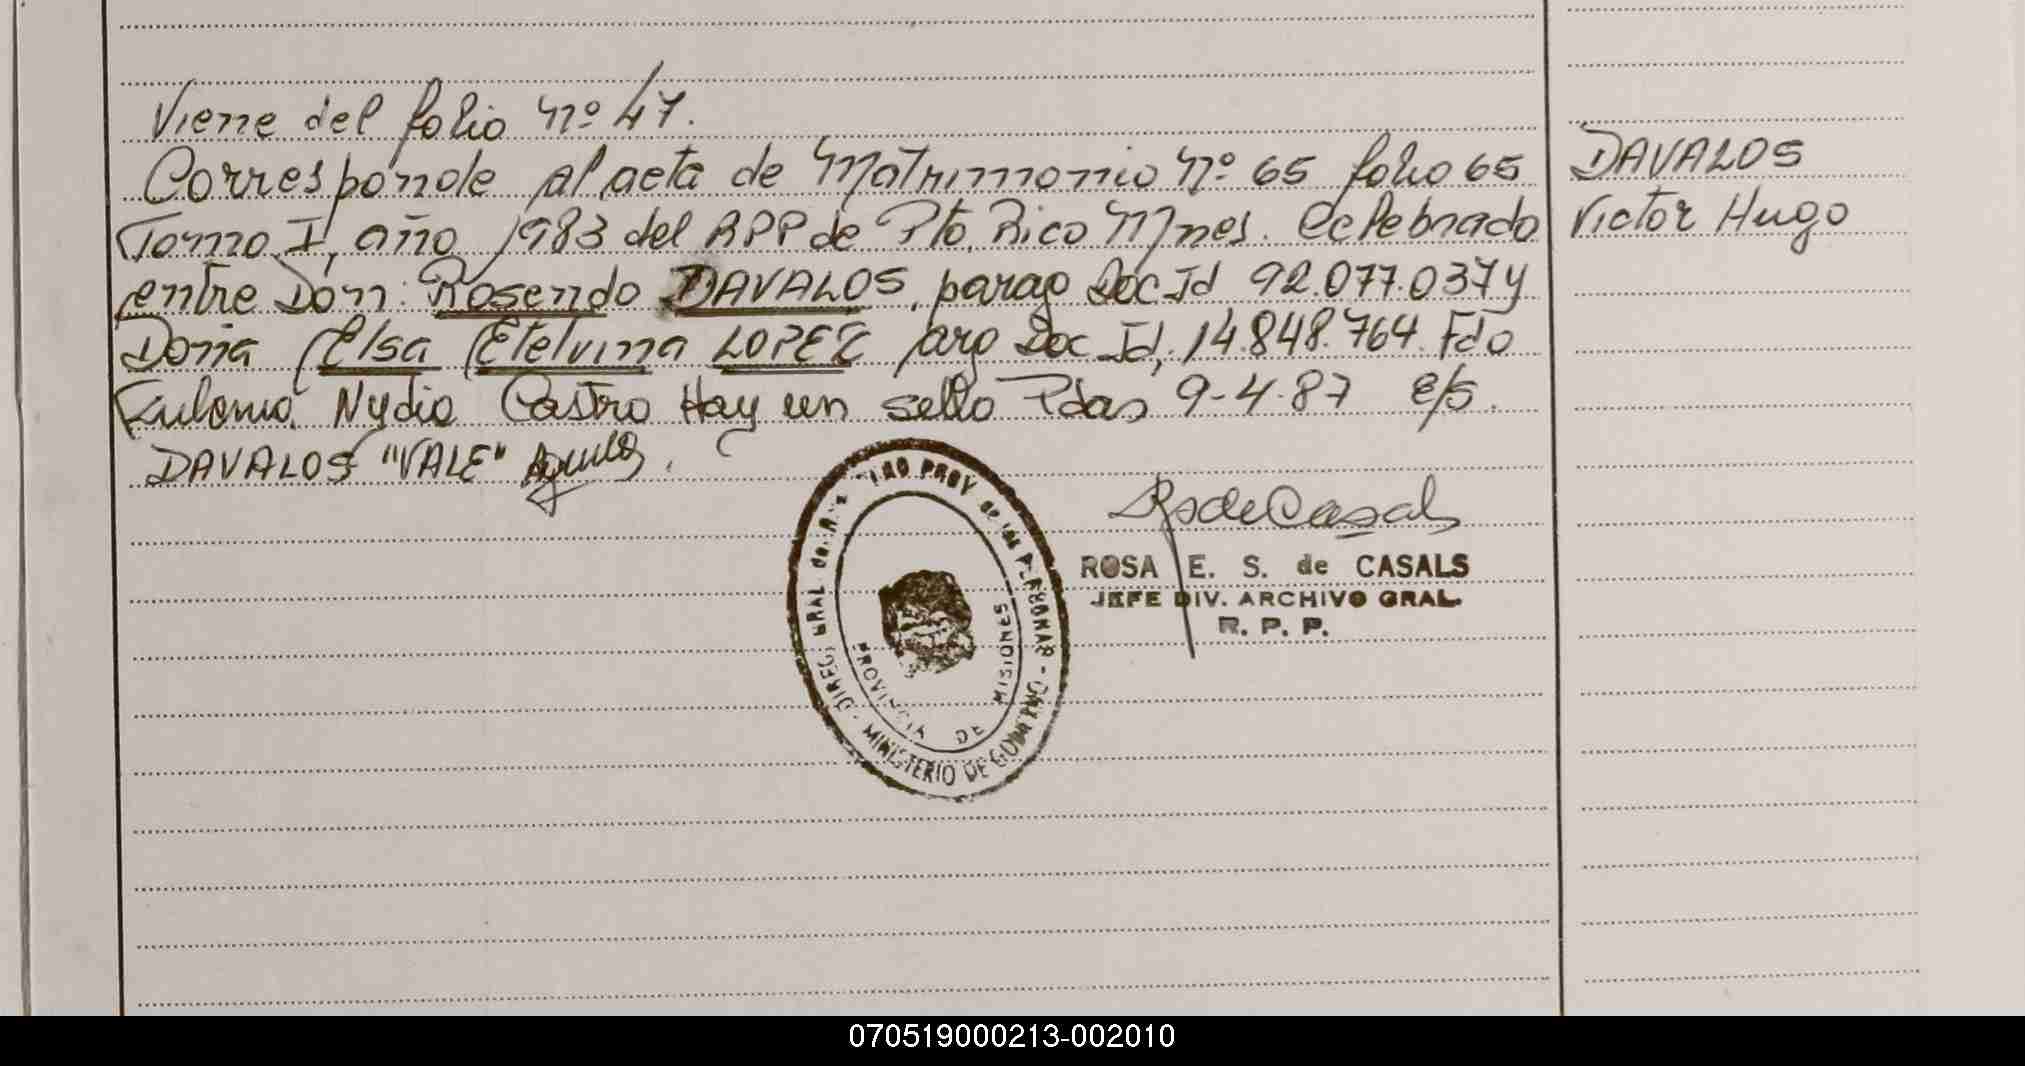 Viene del folio nº 47.
Corresponde al acta de Matrimonio nº 65 folio 65
Tomo I, año 1983 del RPP de Pto. Rico Mnes. celebrado
entre Don: Rosendo DAVALOS, parag Doc Id 92.077.037 y
Doña Elsa Etelvina LOPEZ arg Doc Id, 14.848.764. Fdo
Nydia Castro Hay un sello Pdas 9-4-87 e/s.
DAVALOS "VALE"
DAVALOS
Victor Hugo
ROSA E. S. de CASALS
JEFE DIV. ARCHIVO GRAL.
R. P. P.
PROV. de las PERSONAS - MINISTERIO DE GOBIERNO
PROVINCIA DE MISIONES
070519000213-002010